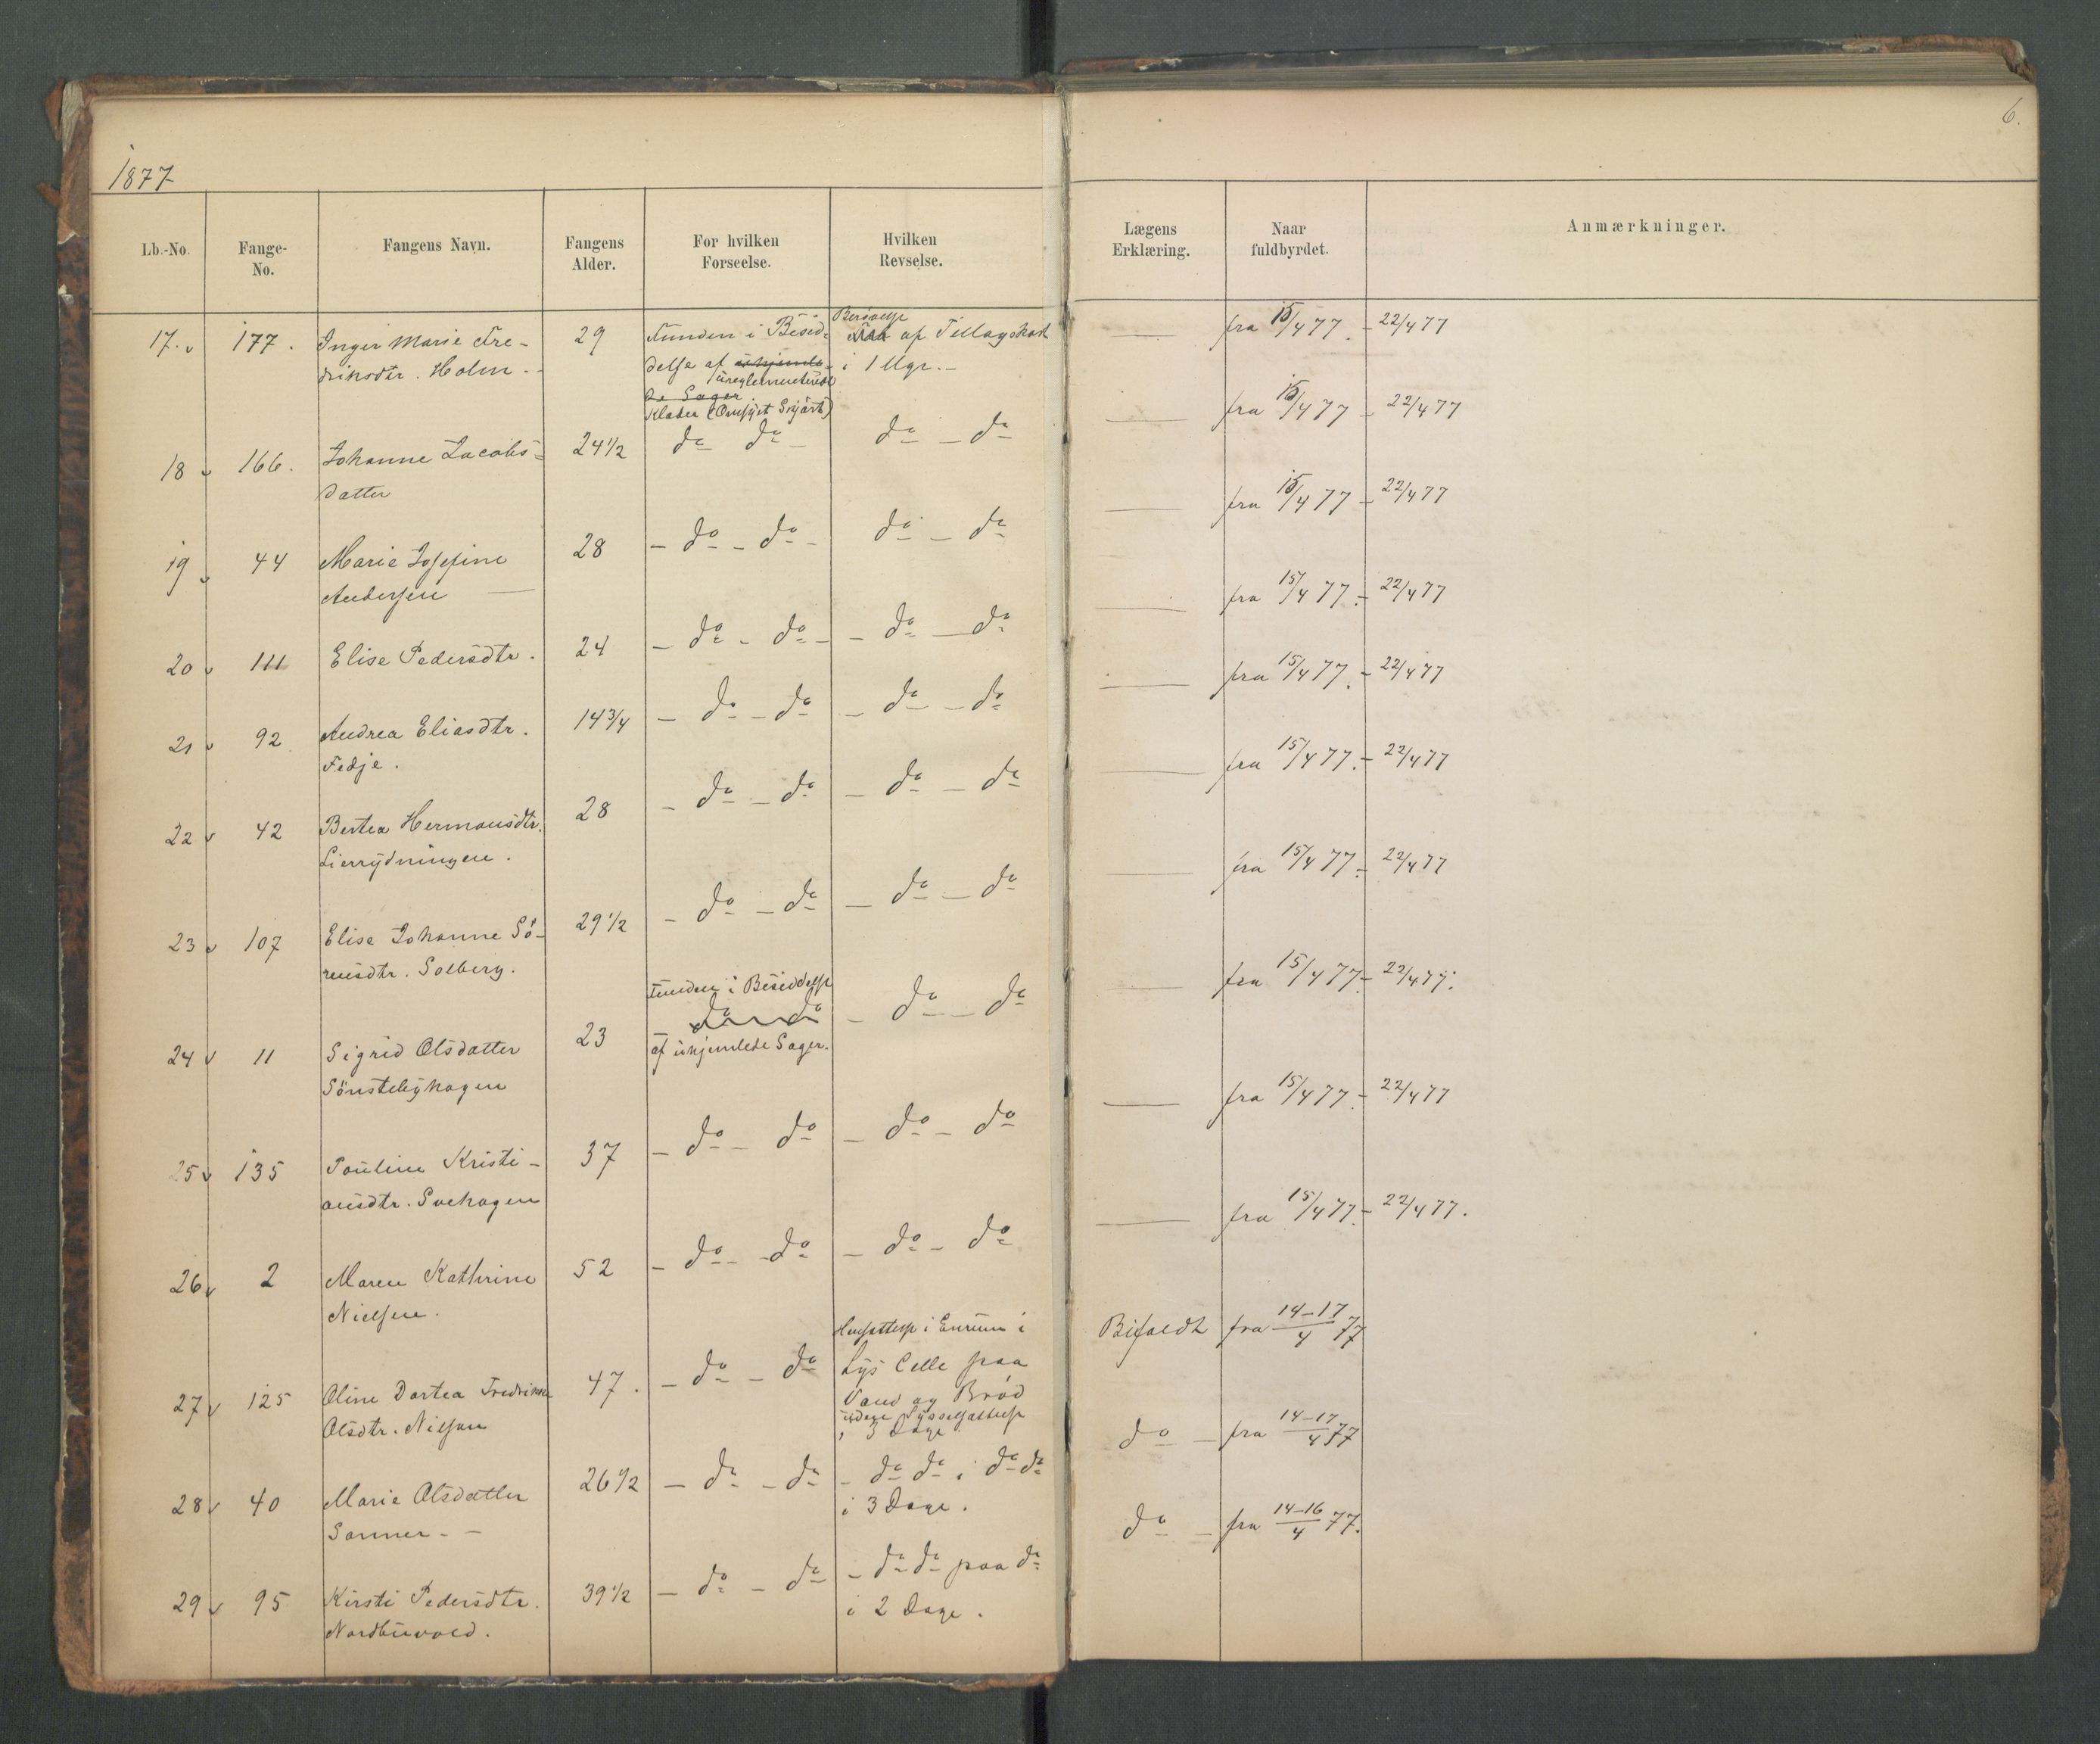 1877
6.
Lb.-No. Fange-No. Fangens Navn. Fangens Alder. For hvilken Forseelse. Hvilken Revselse. Lægens Erklæring. Naar fuldbyrdet. Anmærkninger.
17. 177. Inger Marie Fre- 29 Funden i Besid- Berøvelse af Tillægskost — fra 15/4 77 - 22/4 77
driksdtr. Holm - delse af uhjemle- i 1 Uge.-
ureglementerede
de Sager
Klæder (Omsyet Skjørt)
18 166. Johanne Jacobs- 24 1/2 do do - do - do — fra 15/4 77 - 22/4 77
datter
19 44 Marie Josefine 28 - do - do - do - do — fra 15/4 77 - 22/4 77
Andersen —
20 111 Elise Pedersdtr. 24 - do - do - - do - do — fra 15/4 77 - 22/4 77
21 92 Andrea Eliasdtr. 14 3/4 - do - do - do - do — fra 15/4 77 - 22/4 77
Fedje.
22 42 Bertea Hermansdtr. 28 - do - do - do - do — fra 15/4 77 - 22/4 77
Lierrydningen.
23 107 Elise Johanne Sö- 29 1/2 - do - do - do - do — fra 15/4 77 - 22/4 77
rensdtr. Solberg.
Funden i Besiddelse
24 11 Sigrid Olsdatter 23 do do - do - do — fra 15/4 77 - 22/4 77.
Sönstebyhagen af uhjemlede Sager.
25 135 Pauline Kristi- 37 - do - do - do - do — fra 15/4 77 - 22/4 77
ansdtr. Svehagen
26 2 Maren Kathrine 52 - do - do - do - do — fra 15/4 77 - 22/4 77.
Nielsen.
Hensættelse i Enrum i
27 125 Oline Dortea Fredrikke 47. - do - do Lys Celle paa Bifaldt fra 14-17/4 77
Olsdtr. Nilsen Vand og Brød
uden Sysselsættelse
i 3 Dage
28 40 Marie Olsdatter 26 1/2 - do - do - do do i do do do - fra 14-17/4 77
Sanner - - i 3 Dage.
29 95 Kirsti Pedersdtr. 39 1/2 - do - do - do do paa do do - fra 14-16/4 77.
Nordbuvold. i 2 Dage.